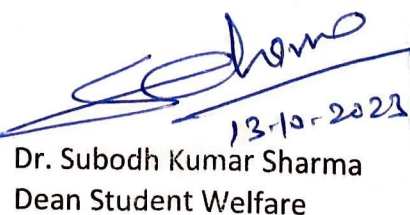 Sharma
13-10-2023
Dr. Subodh Kumar Sharma
Dean Student Welfare